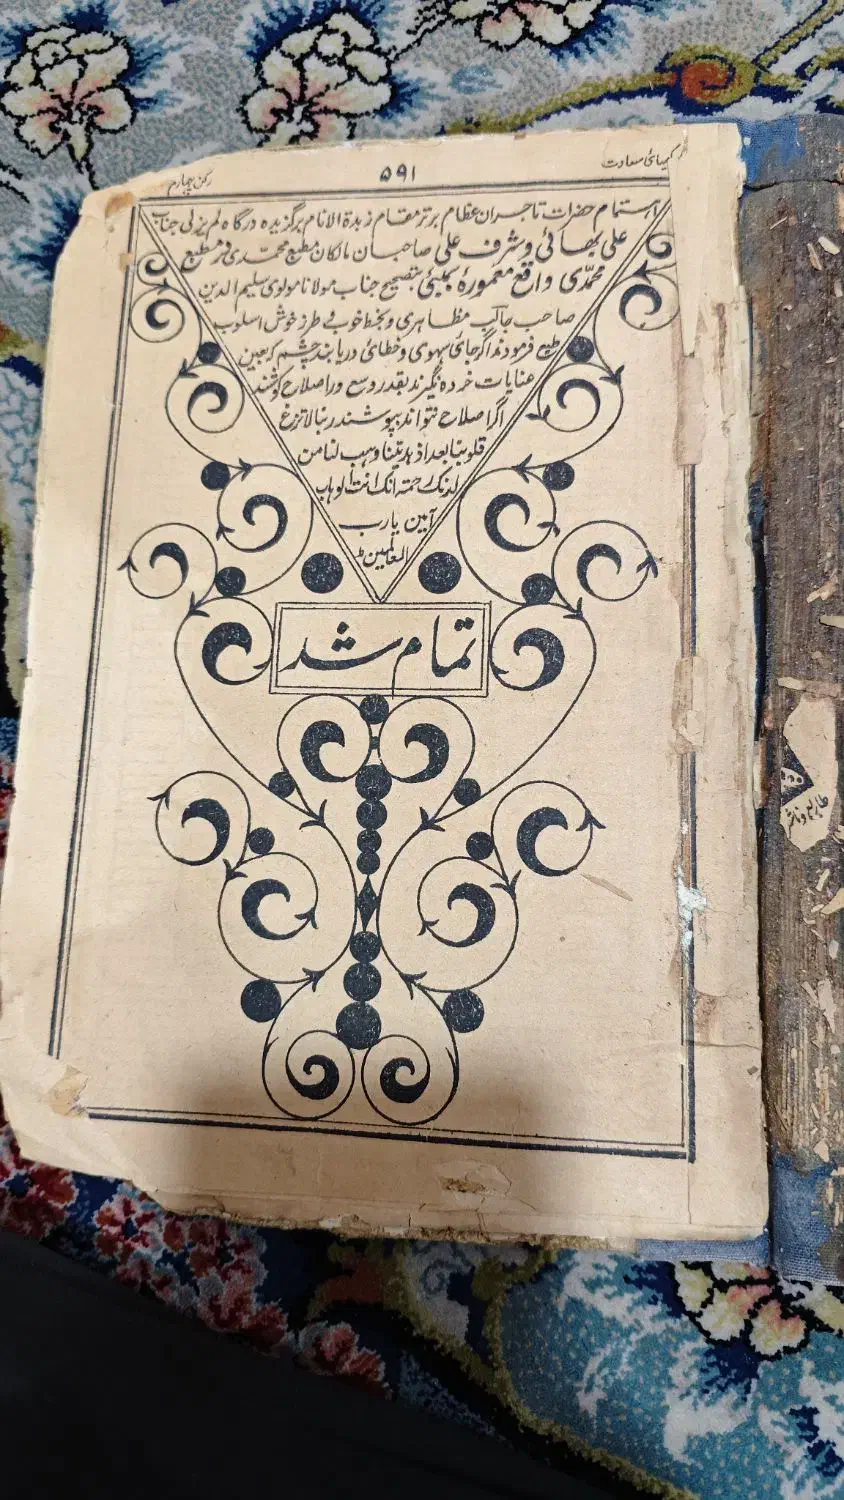 کیمیائ سعادت
۵۹۱
رکن چهارم
اهتمام حضرات تاجران عظام برتر مقام زبدة الانام برگزیده درگاه لم یزلی جناب
علی بھائی و شرف علی صاحبان مالکان مطبع محمدی در مطبع
محمدی واقع معمورۀ بمبئی بتصحیح جناب مولانا مولوی سلیم الدین
صاحب چالیس مظاهری و بخط خوب و طرز خوش اسلوب
طبع فرمودند اگر جائ سهوی و خطائ دریابند چشم که بعین
عنایات خرده نگیرند بقدر وسع در اصلاح کوشند
اگر اصلاح نتوانند بپوشند ربنا لا تزغ
قلوبنا بعد اذ هدیتنا وهب لنا من
لدنک رحمة انک انت الوهاب
آمین یارب
العالمین
تمام شد